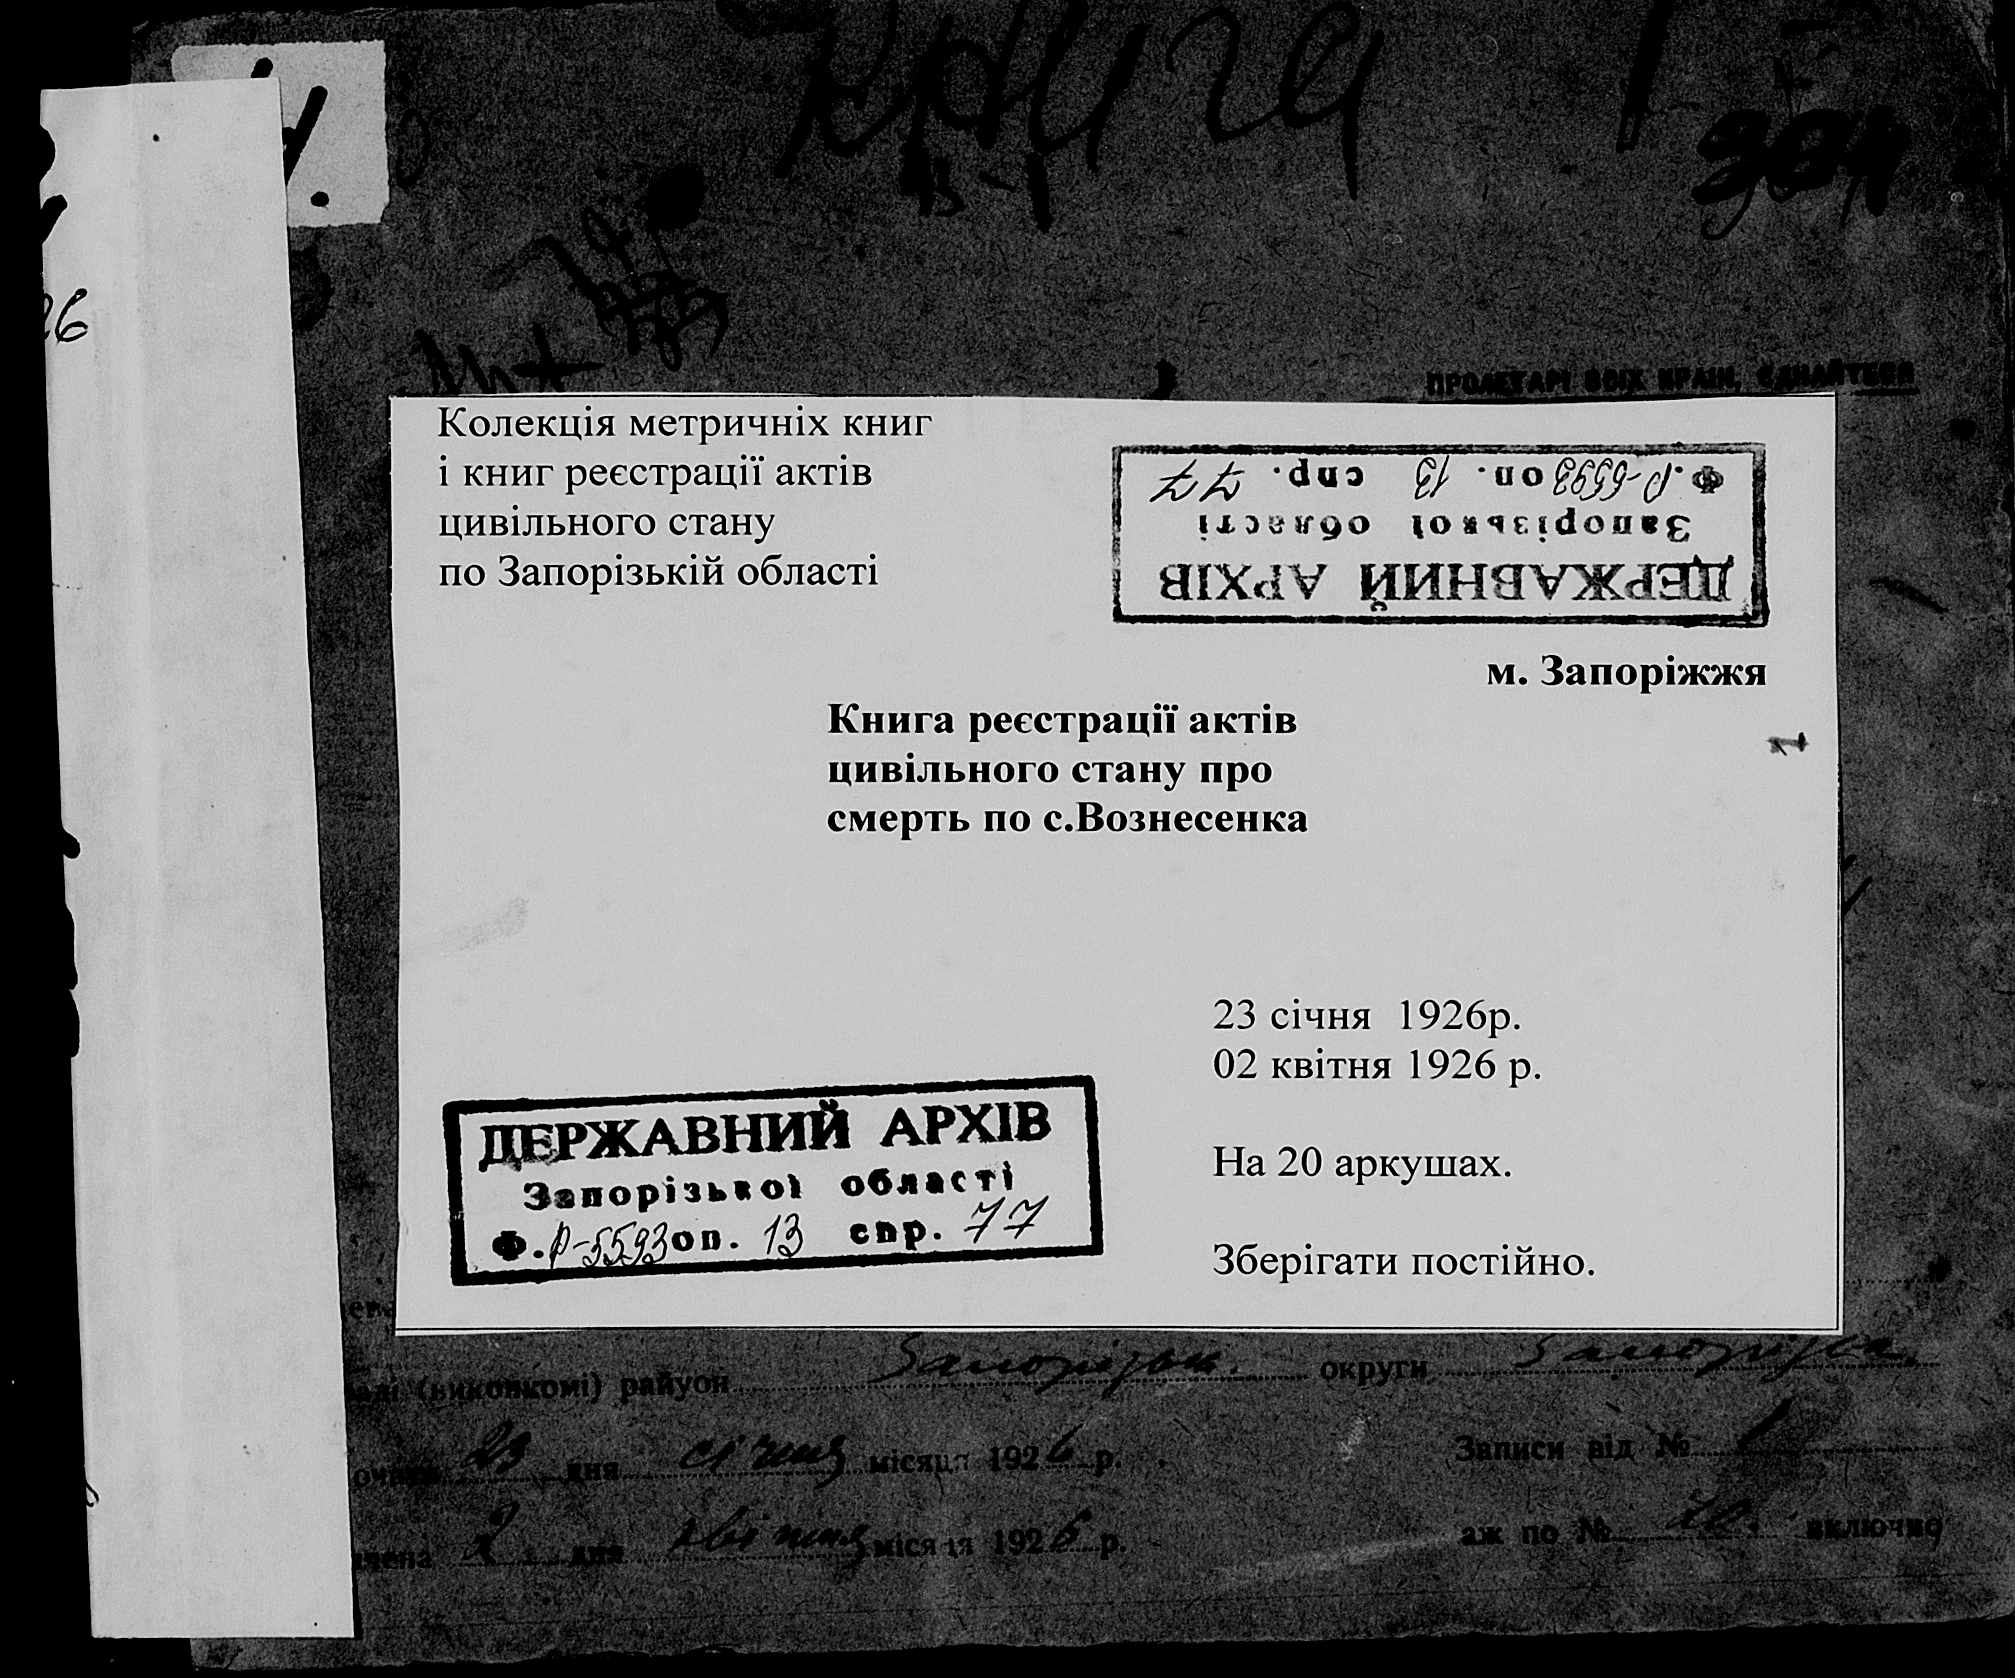 Книга
ПРОЛЕТАРІ ВСІХ КРАЇН, ЄДНАЙТЕСЯ
26
Колекція метричніх книг
і книг реєстрації актів
цивільного стану
по Запорізькій області
ДЕРЖАВНИЙ АРХІВ
Запорізької області
Ф. Р-5593 оп. 13 спр. 77
м. Запоріжжя
Книга реєстрації актів
цивільного стану про
смерть по с.Вознесенка
23 січня 1926р.
02 квітня 1926 р.
На 20 аркушах.
Зберігати постійно.
ДЕРЖАВНИЙ АРХІВ
Запорізької області
Ф. Р-5593 оп. 13 спр. 77
(виконкомі) райуон Запорізьк. округи
23 дня січня місяця 1926 р. Записи від № 1
2 дня квітня місяця 1926 р. аж по № 20 включно